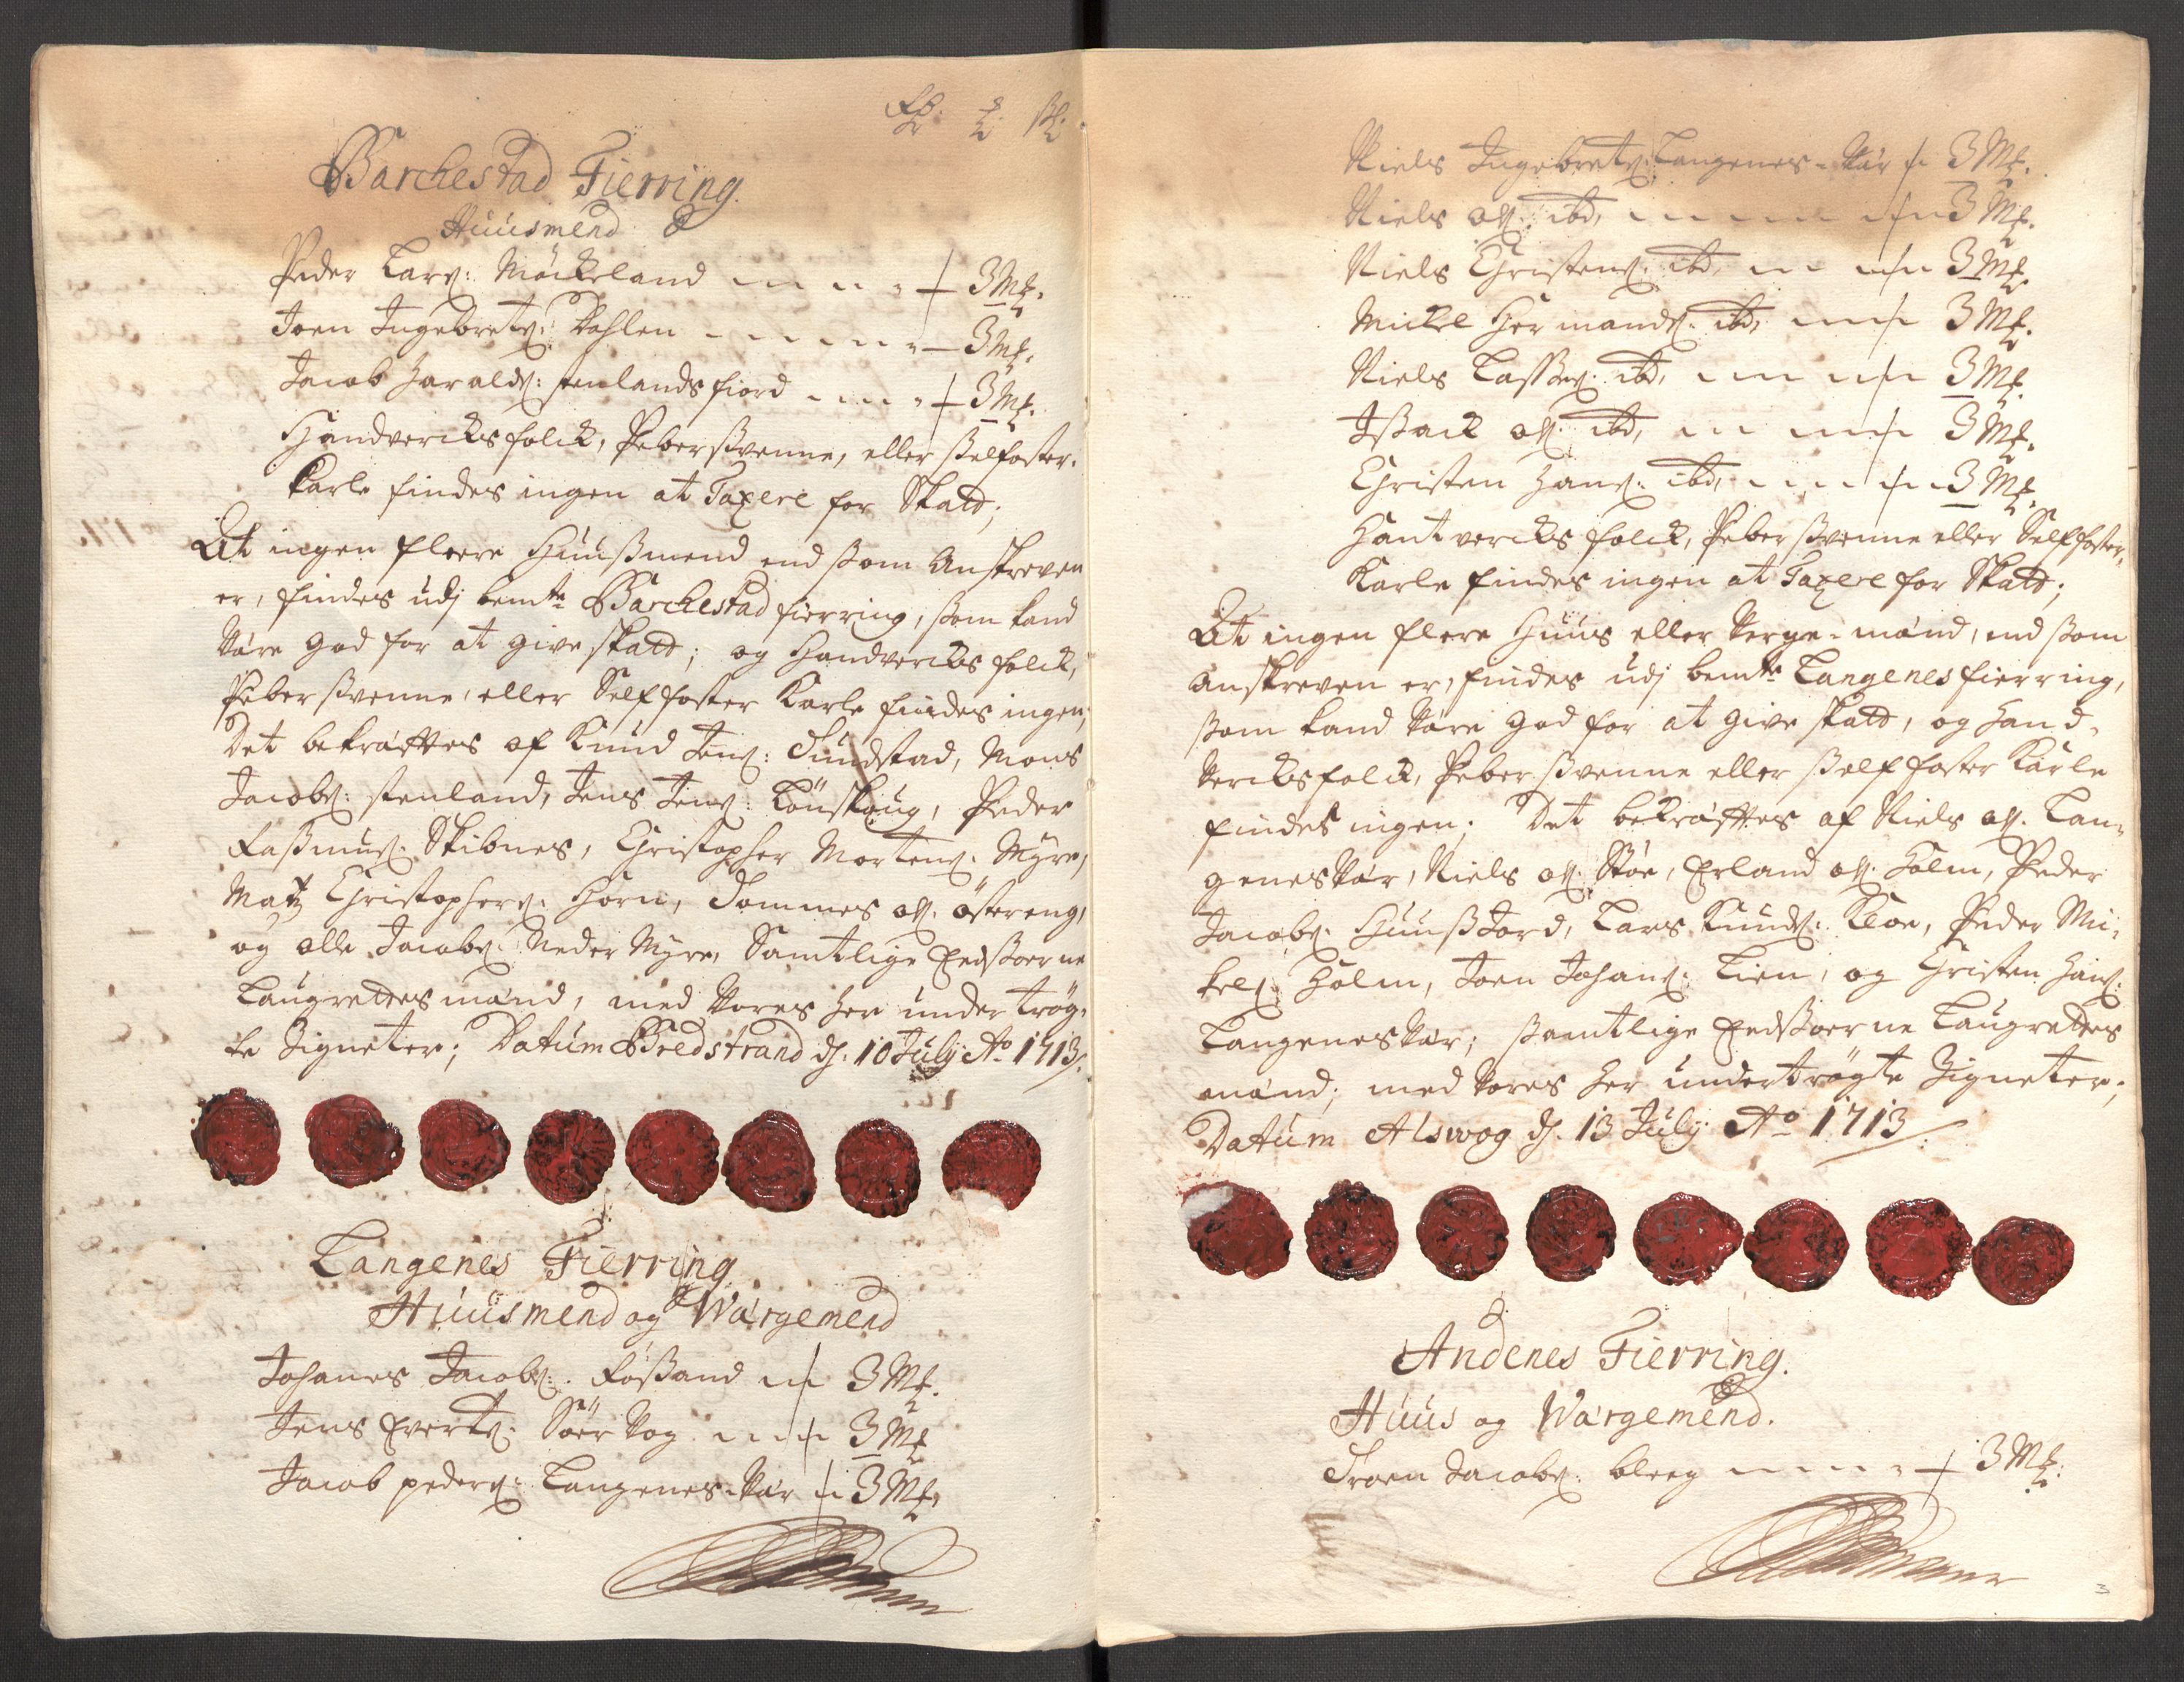 Barchestad Fierring.
Huusmend
Peder Lars: Möckeland 3 Mk.
Joen Ingebrets: Dahlen 3 Mk.
Jacob Haralds: stenlandsfiord 3 Mk.
Handvercksfolck, Pebersvenne, eller sselfoster-
karle findes ingen at Taxere for Skatt;
At ingen fleere Huussmend end ssom anskreven
er, findes udj bemte Barchestad fierring, ssom kand
være god for at give skatt; og Handvercks folck,
Peberssvenne, eller Selffoster Karle findes ingen,
Det bekræfftes af Knud Jens: Sundstad, Mons
Jacobs: stenland, Jens Jens: Lönskoug, Peder
Rassmus: Skibnes, Christopher Mortens: Myre,
Matz Christophers: Horn, Tommes Ols: östereng,
og olle Jacobs: Neder Myre, Samtlige Eedssoerne
Laugrettesmænd, med Vores her under trög-
te Signeter; Datum Bredstrand d: 10 Julij Ao 1713.
Langenes Fierring
Huusmend og Wærgemend
Johanes Jacobs: Fössand 3 Mk.
Jens Everts: Söer Vog 3 Mk
Jacob peders: Langenes-Vær 3 Mk.
Niels Ingebrets: Langenes-Vær 3 Mk.
Niels Ols: ibd, 3 Mk.
Niels Christens: ibd, 3 Mk.
Mickel Hermands: ibd, 3 Mk.
Niels Lasses: ibd, 3 Mk.
Issack Ols: ibd, 3 Mk.
Christen Hans: ibd, 3 Mk.
Hantvercks folck, Peberssvenne eller Selffoster-
Karle findes ingen at Taxere for Skatt;
At ingen flere Huus eller Verge-mænd, end ssom
anskreven er, findes udj bemte Langenes fierring,
ssom kand være god for at give skatt, og Hand-
vercksfolck, Peberssvenne eller sselffoster Karle
findes ingen; Det bekræfftes af Niels Ols. Lan-
genesvær, Niels Ols: Stöe, Erland Ols. Holm, Peder
Jacobs: Huussjord, Lars Knuds: Kloe, Peder Mi-
kels: Holm, Joen Johans: Lien, og Christen Hans:
Langenesvær; ssamtlige Eedssoerne Laugrettes
mænd; med Vores her undertrögte Signeter;
Datum Alswog d: 13 Julij Ao 1713
Andenes Fierring.
Huus og Wærgemend.
Troen Jacobs: bleeg 3 Mk.
3